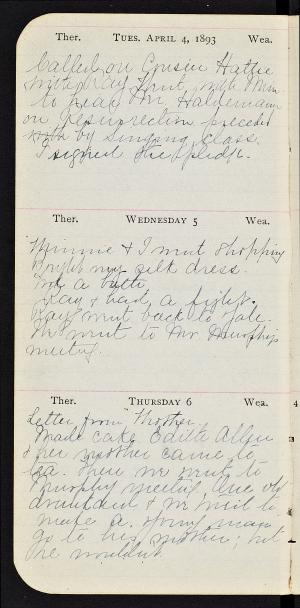 Ther. TUES. APRIL 4, 1893 Wea.
Called on Cousin Hattie
with Ray. Went with Min
to hear Mr. Haldeman
on Resurrection preceded
with by singing class.
I signed the pledge.
Ther. WEDNESDAY 5 Wea.
Minnie & I went shopping
Bought my silk dress.
a bath
Ray & had a fight.
Ray went back to Yale.
We went to Mr
meeting.
Ther. THURSDAY 6 Wea. 4
Letter from Mother.
Made cake Edith Allen
& her mother came to
tea. Then we went to
Murphy meeting. One old
drunkard & we tried to
make a young man
go to his mother; but
he wouldn't